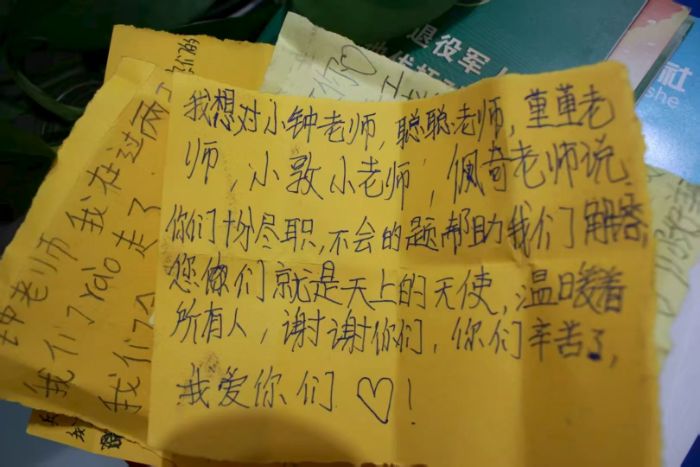 我想对小钟老师，聪聪老师，董董老
师，小敦小老师，佩奇老师说
你们十分尽职，不会的题帮助我们解答，
您们就是天上的天使，温暖着
所有人，谢谢你们，你们辛苦了，
我爱你们♡！
钟老师 我在过两
我们了rao走了
我们
退役军人
社
she